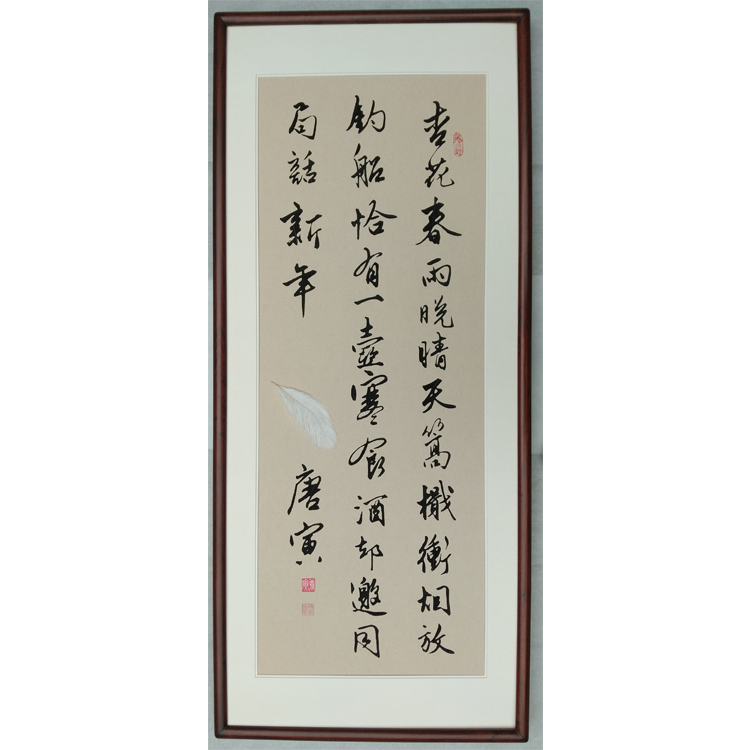 杏花春雨晚晴天篙檝衝烟放
钓船恰有一壺寒食酒却邀同
局話新年
唐寅